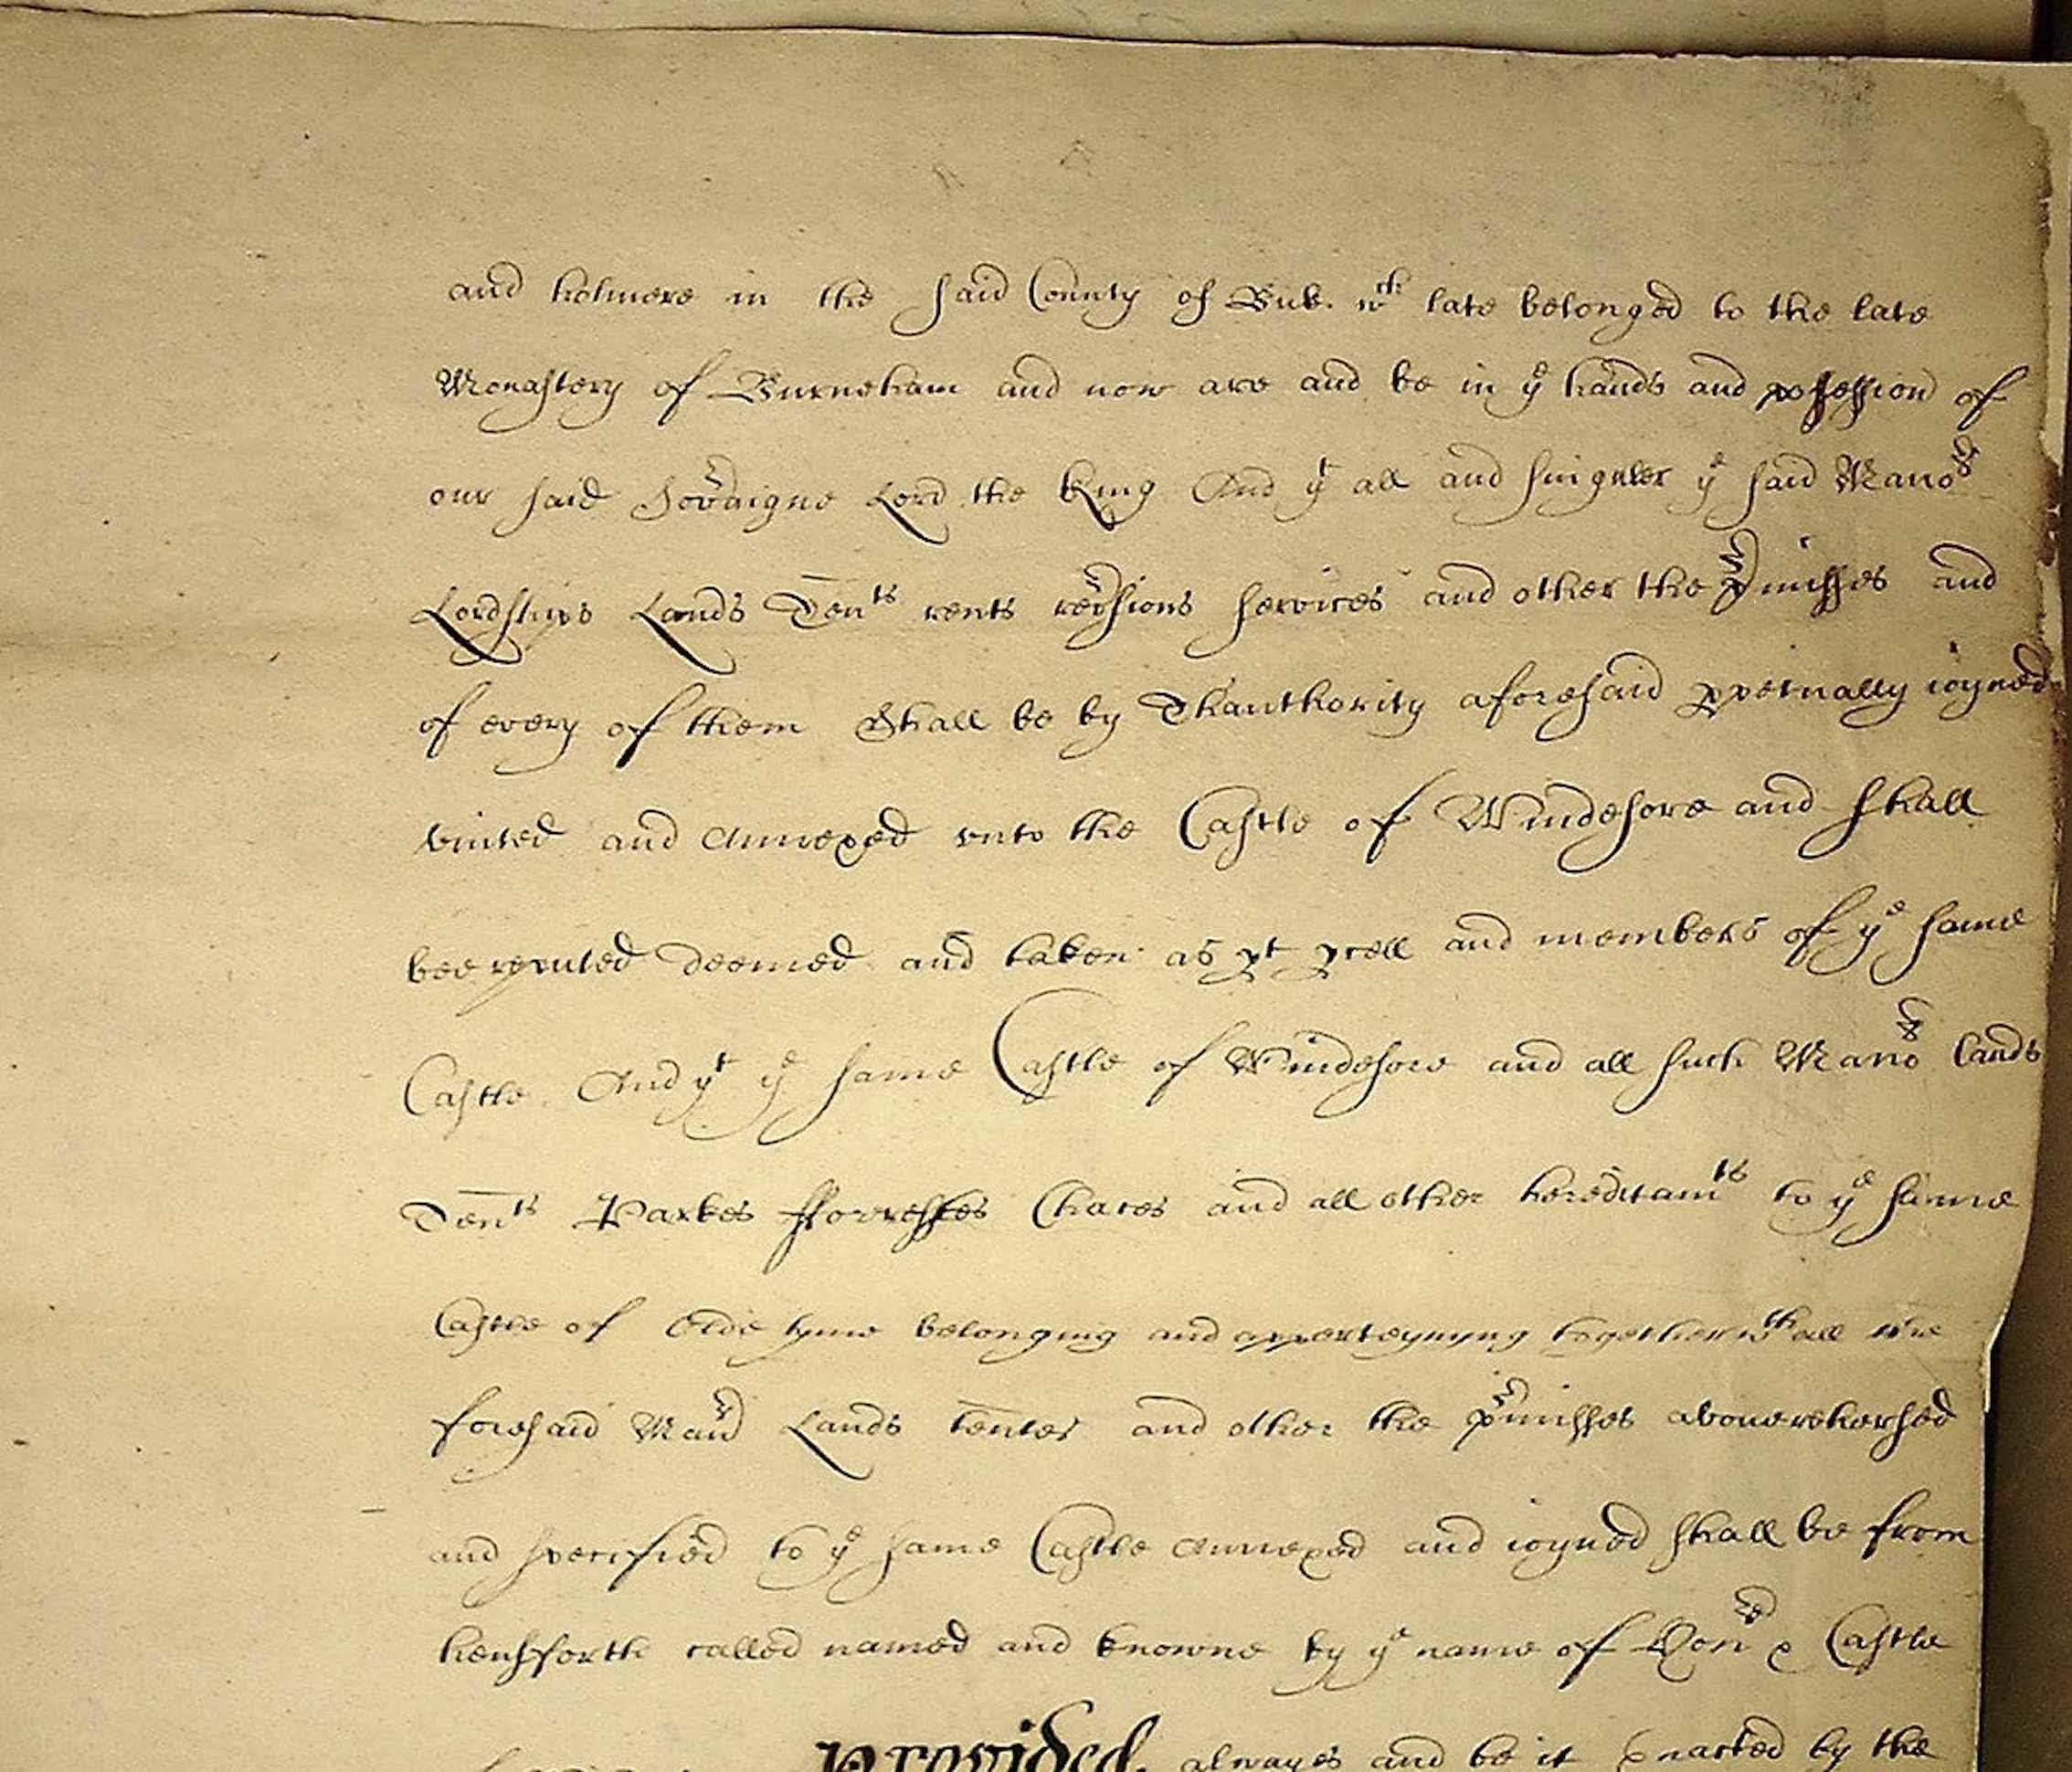 and holmere in the said County of Buk. wch late belonged to the late
Monastery of Burneham and now are and be in ye hands and possession of
our said Sov̄aigne Lord the King And yt all and singuler ye said Manors
Lordships Lands Ten̄ts rents rev̄sions services and other the p̄misses and
of every of them Shall be by Thauthority aforesaid ppetually ioyned
vnited and Annexed vnto the Castle of Windesore and shall
bee reputed deemed and taken as pt pcell and members of ye same
Castle And yt ye same Castle of Windesore and all such Manors Lands
Ten̄ts Parkes fforrestes Chaces and all other hereditamts to ye same
Castle of Olde tyme belonging and apperteynyng together wth all the
foresaid Manr Lands ten̄tes and other the p̄misses abouerehersed
and specified to ye same Castle Annexed and ioyned shall be from
hensforth called named and knowne by ye name of Honr & Castle
Provided always and be it Enacted by the